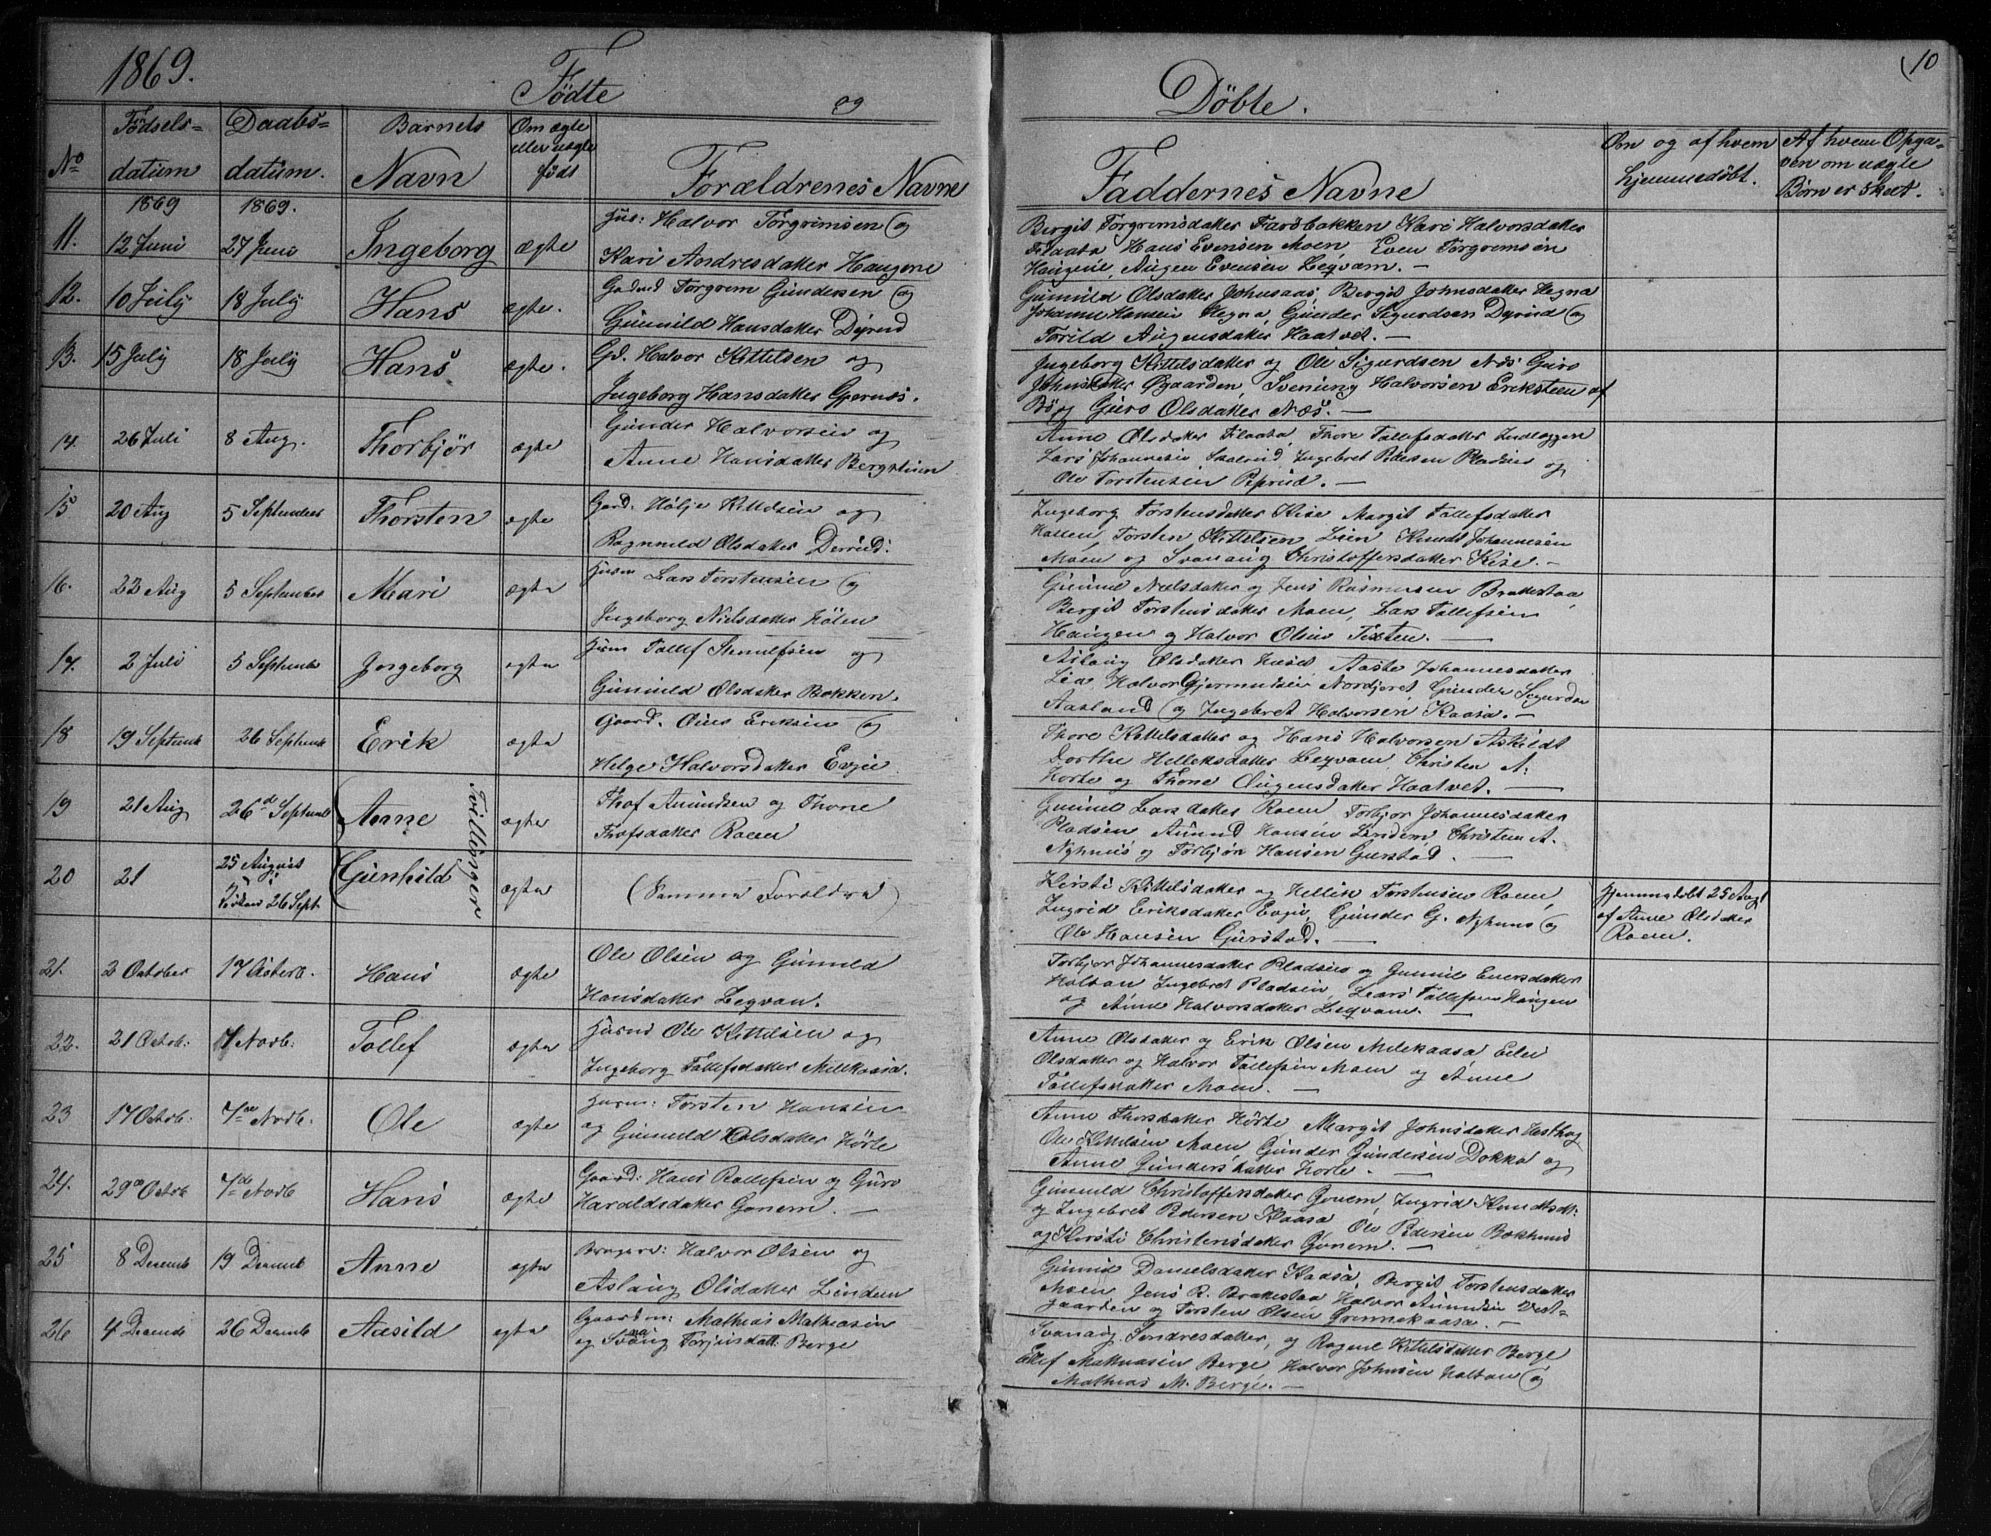 1869.
Fødte
og
Døbte.
10
No
Fødsels=
datum
Daabs=
datum.
Barnets
Navn
Om ægte
eller uægte
født
Forældrenes Navne
Faddernes Navne
Om og af hvem
hjemmedøbt.
Af hvem Opga-
ven om uægte
Børn er skeet.
1869
1869.
11. 12 Juni 27 Juni Ingeborg ægte
Hus: Halvor Torgrimsen og
Kari Andresdatter Haugene
Bergit Torgrimsdatter Kari Halvorsdatter
Hans Evensen Moen, Even Torgrimsen
Haugene, Augen Evensen Legvam. —
12. 10 July 18 July Hans ægte.
Torgrim Gundersen og
Gunnild Hansdatter Dyrud
Gunnild Olsdatter Johnsaas, Bergit Johnsdatter Hegna
Johannes Hansen Hegna, Gunder Sigurdsen Dyrud og
Torild Augensdatter Haatvet. —
13. 15 July 18 July Hans ægte.
Gd. Halvor Kittelsen og
Ingeborg Hansdatter Gjernæs.
Ingeborg Kittelsdatter og Ole Sigurdsen Næs Guro
Johnsdatter Øgaarden, Svenung Halvorsen Eriksteen af
Bø og Guro Olsdatter Næs. —
14. 26 Juli 8 Aug. Thorbjør ægte
Gunder Halvorsen og
Anne Hansdatter Bergsteen
Anne Olsdatter Flaata, Thore Tollefsdatter
Lars Johannesen Ingebret Pedersen Pladsen og
Ole Torstensen —
15 20 Aug 5 September Thorsten ægte
Gard. Hølje Kittelsen og
Ragnild Olsdatter
Ingeborg Torstensdatter Kise Margit Tollefsdatter
Torsten Kittelsen Lien, Knudt Johannesen
Moen og Svanaug Christoffersdatter Kise. —
16. 22 Aug 5 September Mari ægte
Lars Torstensen og
Ingeborg Nielsdatter
Gunnil Nielsdatter og Jens Rasmussen Brakestaa
Bergit Torstensdatter Moen, Lars Tollefsen
Haugen og Halvor Olsen —
17. 2 Juli 5 Septemb Ingeborg ægte
Husm Tollef og
Gunnild Olsdatter Bakken.
Aslaug Olsdatter Aaste Johannesdatter
Lia, Halvor Gjermundsen Nordjoret Gunder Sigurdsen
Aasland og Ingebret Halvorsen Kaasa. —
18 19 Septemb 26 Septemb Erik ægte
Gaard. Eriksen og
Helge Halvorsdatter Evju
Thore Kittelsdatter og Hans Halvorsen Askildt
Dorthe Helleksdatter Legvam, Christen A.
Horte og Thone Augensdatter Haatvet. —
19 21 Aug 26d Septemb Anne Tvillinger ægte
Thof Amundsen og Thone
Thofsdatter Roem
Gunnil Larsdatter Roem, Torbjør Johannesdatter
Pladsen Amund Hansen Lindem, Christen A.
Nyhuus og Torbjørn Hansen Gurstad. —
20 21 25 August
Kirken 26 Sept. Gunhild ægte
(Samme Foreldre)
Kirsti Kittelsdatter og Hellik Torstensen Roem,
Ingrid Eriksdatter Evju, Gunder G. Nyhuus og
Ole Hansen Gurstad. —
Hjemmedøbt 25 Augt
af Anne Olsdatter
Roem.
21. 2 October 17 Octorb. Hans ægte
Ole Olsen og Gunnild
Hansdatter Legvam.
Torbjør Johannesdatter Pladsen og Gunnil Eversdatter
Holtan Ingebret Pladsen, Lars Tollefsen Haugen
og Anne Halvorsdatter Legvam. —
22. 21 Octob: 7 Novb. Tollef ægte
Husmd Ole Kittelsen og
Ingeborg Tollefsdatter Milekaasa.
Anne Olsdatter og Erik Olsen Milekaasa
Olsdatter og Halvor Tollefsen Moen og Anne
Tollefsdatter Moen. —
23 17 Octob. 7de Novb. Ole ægte
Husm: Torsten Hansen
og Gunnild Olsdatter Hørte
Anne Thorsdatter Hørte Margit Johnsdatter Hesthag
Ole Kittelsen Moen, Gunder Gundersen Dokka og
Anne Gundersdatter Horte. —
24. 29de Octob 7de Novb Hans ægte
Gaard: Hans Rollefsen og Guro
Haraldsdatter Gonem. —
Gunnild Christoffersdatter Gonem, Ingrid Knudtsdt:
og Ingebret Pedersen Kaasa Ole Pedersen Bakhuus
og Kirsti Christensdatter Gonem. —
25 8 Decemb 19 Decemb Anne ægte
Halvor Olsen og
Aslaug Olsdatter Lindem
Gunnil Danielsdatter Kaasa, Bergit Torstensdatter
Moen, Jens R. Brakestaa Halvor Amundsen Vest-
gaarden og Torsten Olsen Grinnekaasa. —
26 4 Decemb 26 Decemb Aasild ægte
Gaardm: Mathias Mathiasen
og Svanaug Torjuisdatt: Berge
Svanaug Sondresdatter, og Ragnil Kittelsdatter Berge
Ellef Mathiasen Berge Halvor Johnsen Holtan og
Mathias M. Berge. —